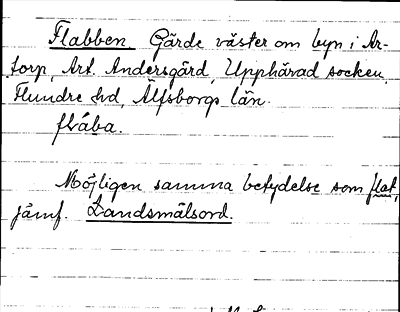 Flabben Gärde väster om byn i Ar-
torp, Art. Andersgård, Upphärad socken,
Flundre hd, Älfsborgs län.
flába.
Möjligen samma betydelse som flat,
jämf. Landsmålsord.